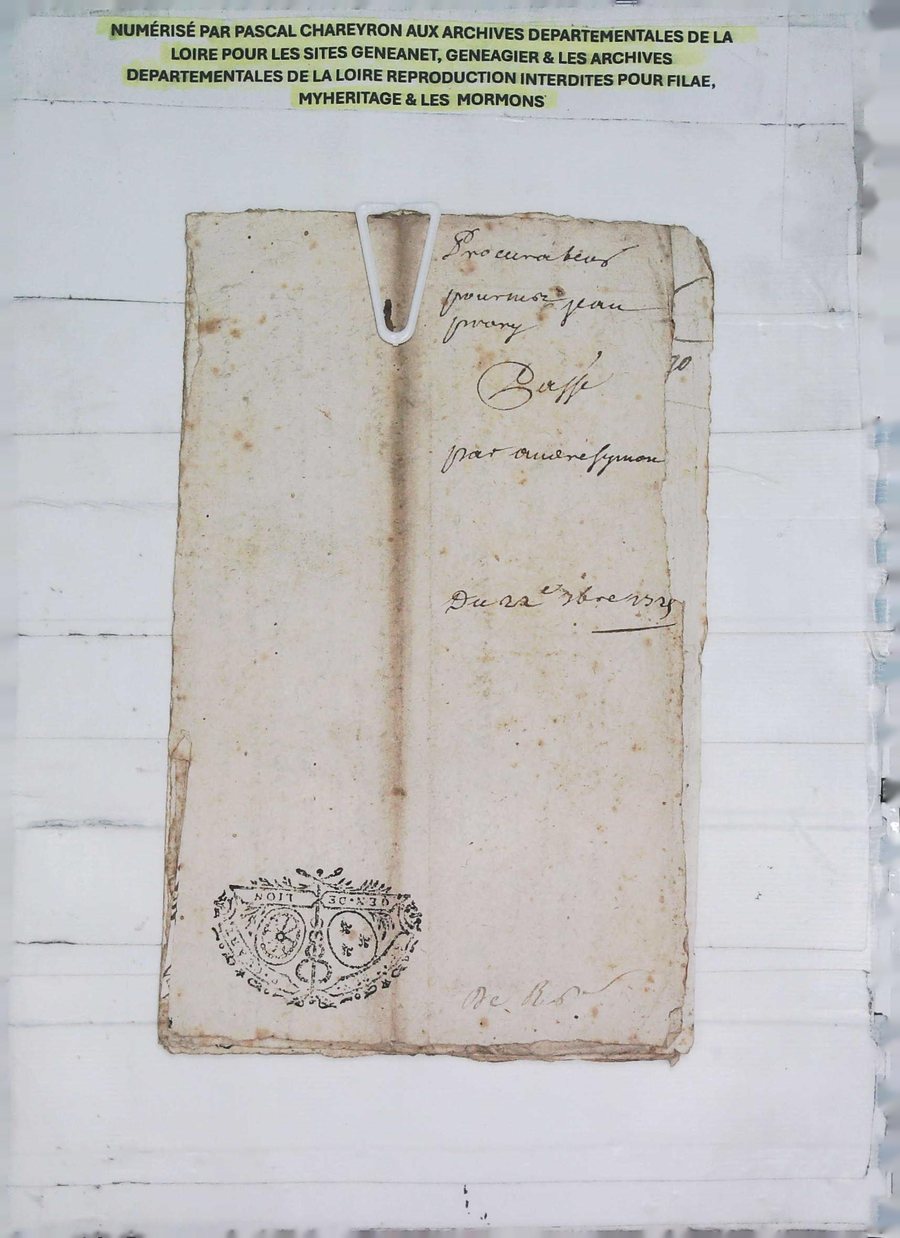 NUMÉRISÉ PAR PASCAL CHAREYRON AUX ARCHIVES DEPARTEMENTALES DE LA
LOIRE POUR LES SITES GENEANET, GENEAGIER & LES ARCHIVES
DEPARTEMENTALES DE LA LOIRE REPRODUCTION INTERDITES POUR FILAE,
MYHERITAGE & LES MORMONS
Procuration
pour jean
Passé
par andre symon
Du 22e
GEN·DE LION